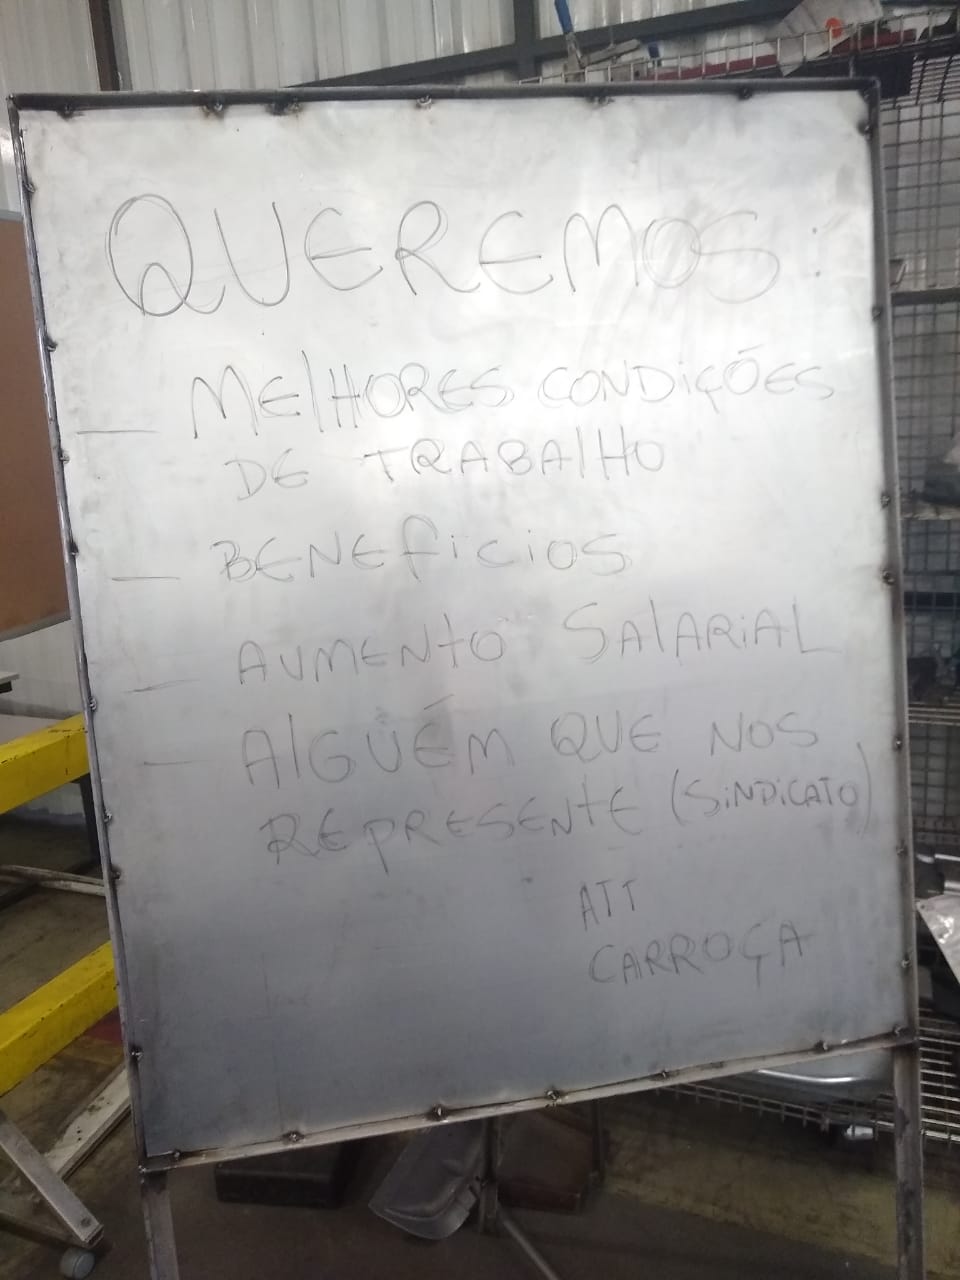 QUEREMOS:
— MELHORES CONDIÇÕES
DE TRABALHO
— BENEFICIOS
— AUMENTO SALARIAL
— ALGUÉM QUE NOS
REPRESENTE (SINDICATO)
ATT
CARROÇA